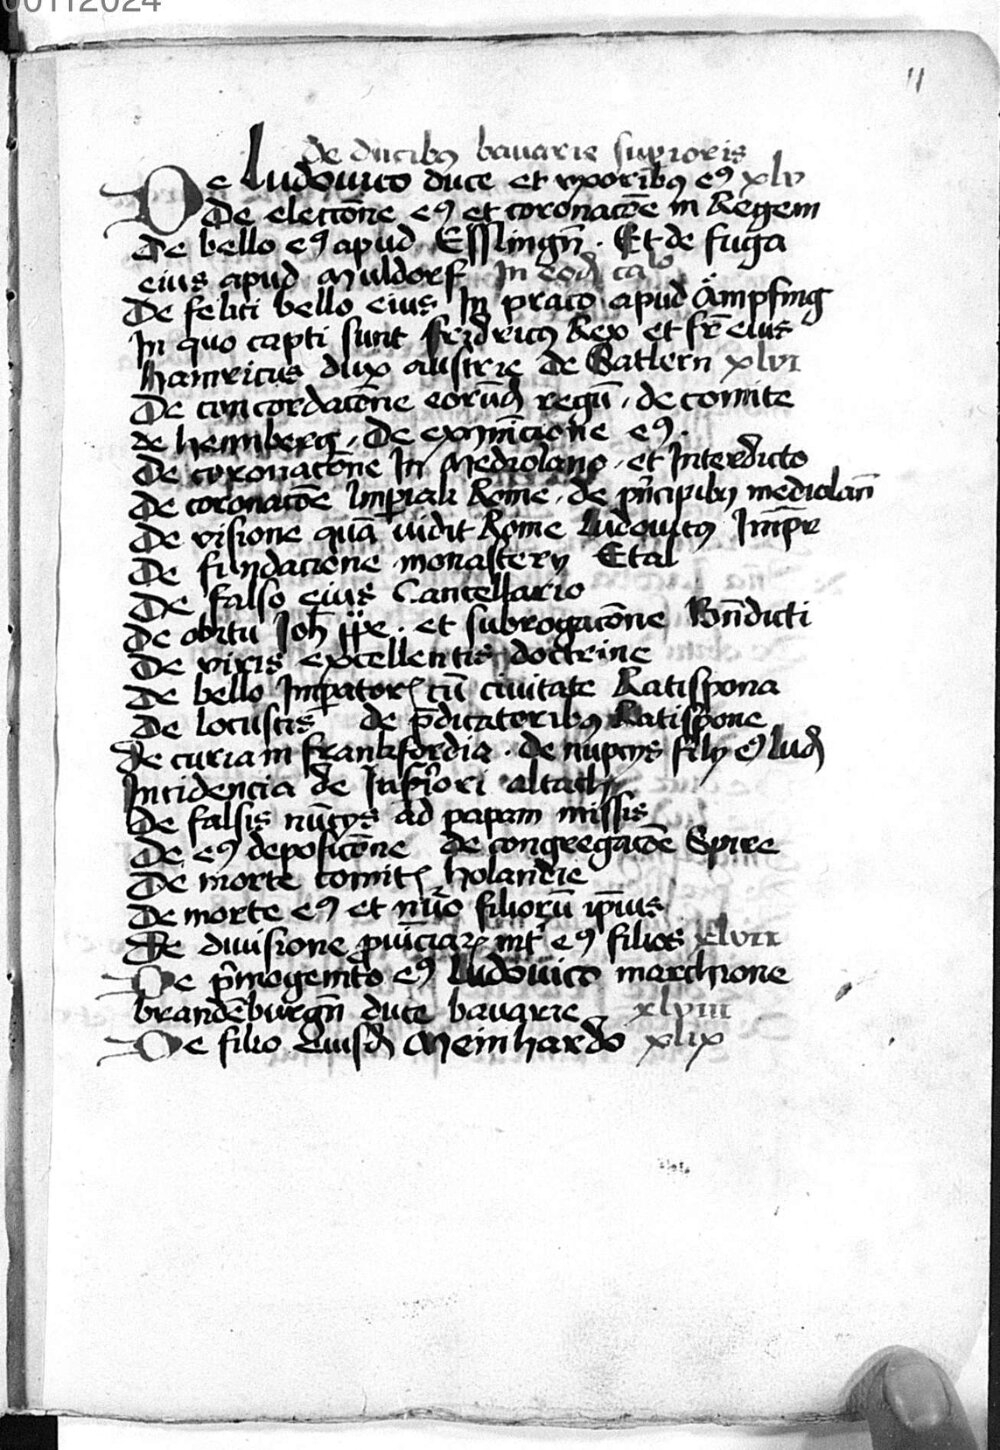 00112024
11
de ducibꝫ bavarie superioris
De Ludouico duce et vxoribꝫ eꝰ xlv
De elecc̄one eꝰ et coronac̄oe in Regem
De bello eꝰ apud Esslingn̄ . Et de fuga
eius apud Muldorf In eod̄ ca⁰
De felici bello eius In prato apud Ampfing
In quo capti sunt fridricꝰ Rex et fr̄ eius
hainricus dux austrie de Gatlern xlvi
De concordac̄one eorūd̄ regū , de comite
de hennberg , De exam̄inac̄ione eꝰ .
De coronac̄one In Mediolano , et Interdicto
De coronac̄oe Imperiali Rome . de pn̄cipibꝫ mediolan̄
De visione quā vidit Rome Ludouicꝰ Imp̄r
De fundacione monastery Etal
De falso eius Cancellario
De obitu Joh̄ pp̄e . et subrogac̄one Bn̄dicti
De viris excellentis doctrine
De bello Imp̄atorꝭ cū ciuitate Ratispona
De locustis de p̄dicatoribꝫ Ratispone
De curia in frankfordia . de nupcys fily eꝰ lud̄
Incidencia de Inf̄iori altach
De falsis nūcys ad papam missis
De eꝰ deposic̄one de congregac̄oe Spire
De morte comitꝭ holandie
De morte eꝰ et nūo filiorū ip̄ius
De diuisione ꝓuīciaꝝ int̄ eꝰ filios xlvii
De p̄mogenito eꝰ Ludouico marchione
brandēburgn̄ duce bavarie xlviii
De filio huiusd̄ Meinhardo xlix